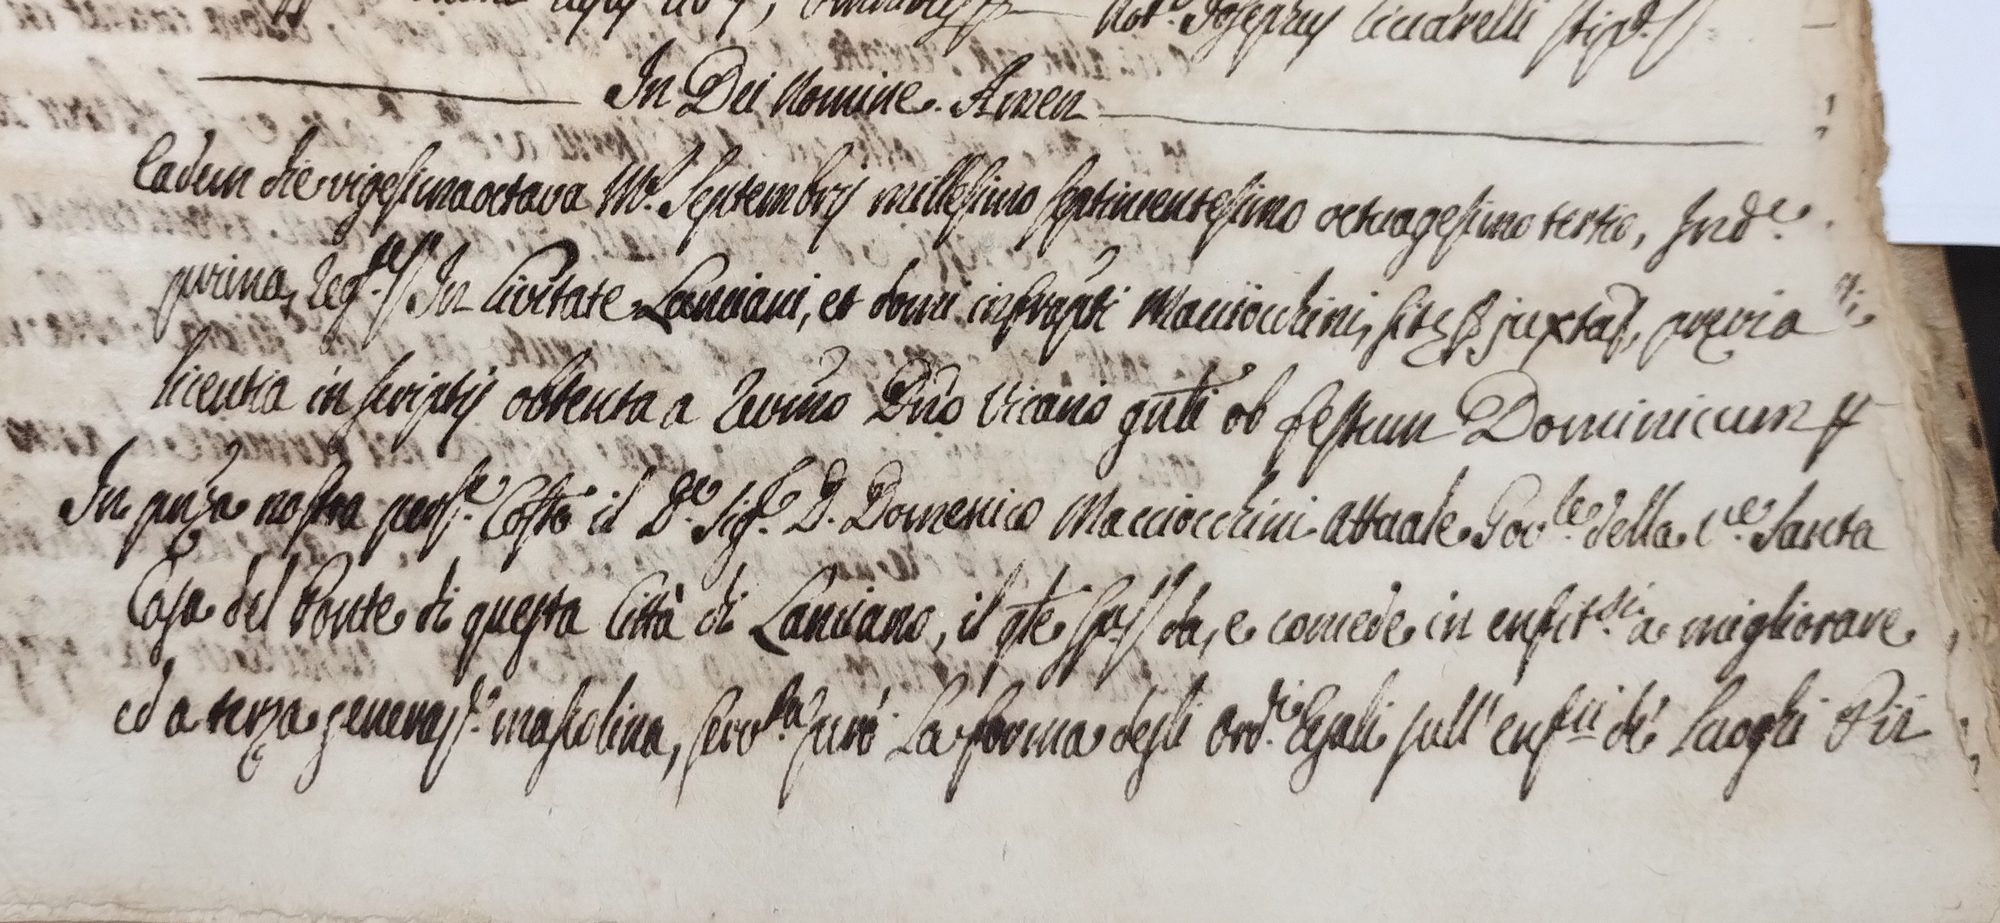 Not.s Josephus Ciccarelli stip.s
In Dei Nomine. Amen
Eadem die vigesimaoctava M.s Septembris millesimo septincentesimo octuagesimo tertio, Ind.e
prima, Reg.te In Civitate Lanciani, et domi infrapti Macciocchini, sitę juxta, pręvia
licentia in scriptis obtenta a Rev͂mo Dn͂o Vicario gn͂li ob festum Dominicum
In pn͂za nostra pers.e Costo il D.e Sig.e D. Domenico Macciocchini attuale Gov.le della V.e Santa
Casa del Ponte di questa Città di Lanciano, il qle da, e concede in enfit.si a migliorare
ed a terza generaz.e mascolina, serv.ta però la forma degli Ord.i Reali sull' enf.si de' Luoghi Pii